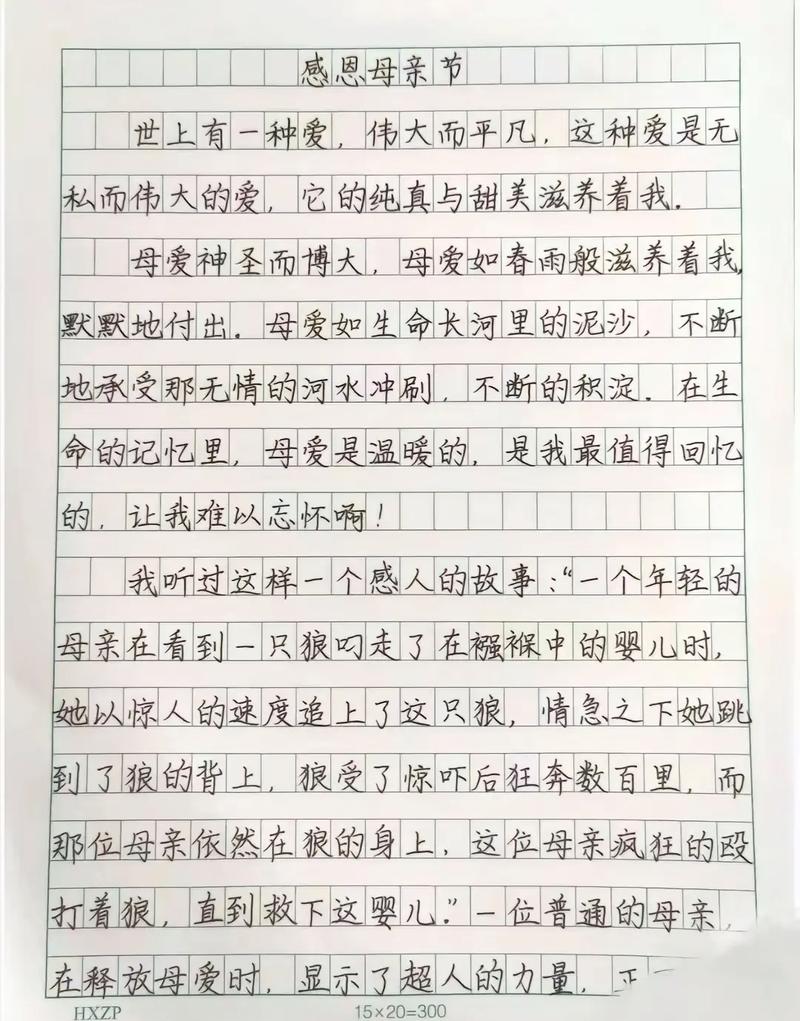 感恩母亲节
世上有一种爱，伟大而平凡，这种爱是无
私而伟大的爱，它的纯真与甜美滋养着我.
母爱神圣而博大，母爱如春雨般滋养着我,
默默地付出.母爱如生命长河里的泥沙，不断
地承受那无情的河水冲刷，不断的积淀.在生
命的记忆里，母爱是温暖的，是我最值得回忆
的，让我难以忘怀啊！
我听过这样一个感人的故事：“一个年轻的
母亲在看到一只狼叼走了在襁褓中的婴儿时，
她以惊人的速度追上了这只狼，情急之下她跳
到了狼的背上，狼受了惊吓后狂奔数百里，而
那位母亲依然在狼的身上，这位母亲疯狂的殴
打着狼，直到救下这婴儿.”一位普通的母亲，
在释放母爱时，显示了超人的力量，
HXZP 15×20=300